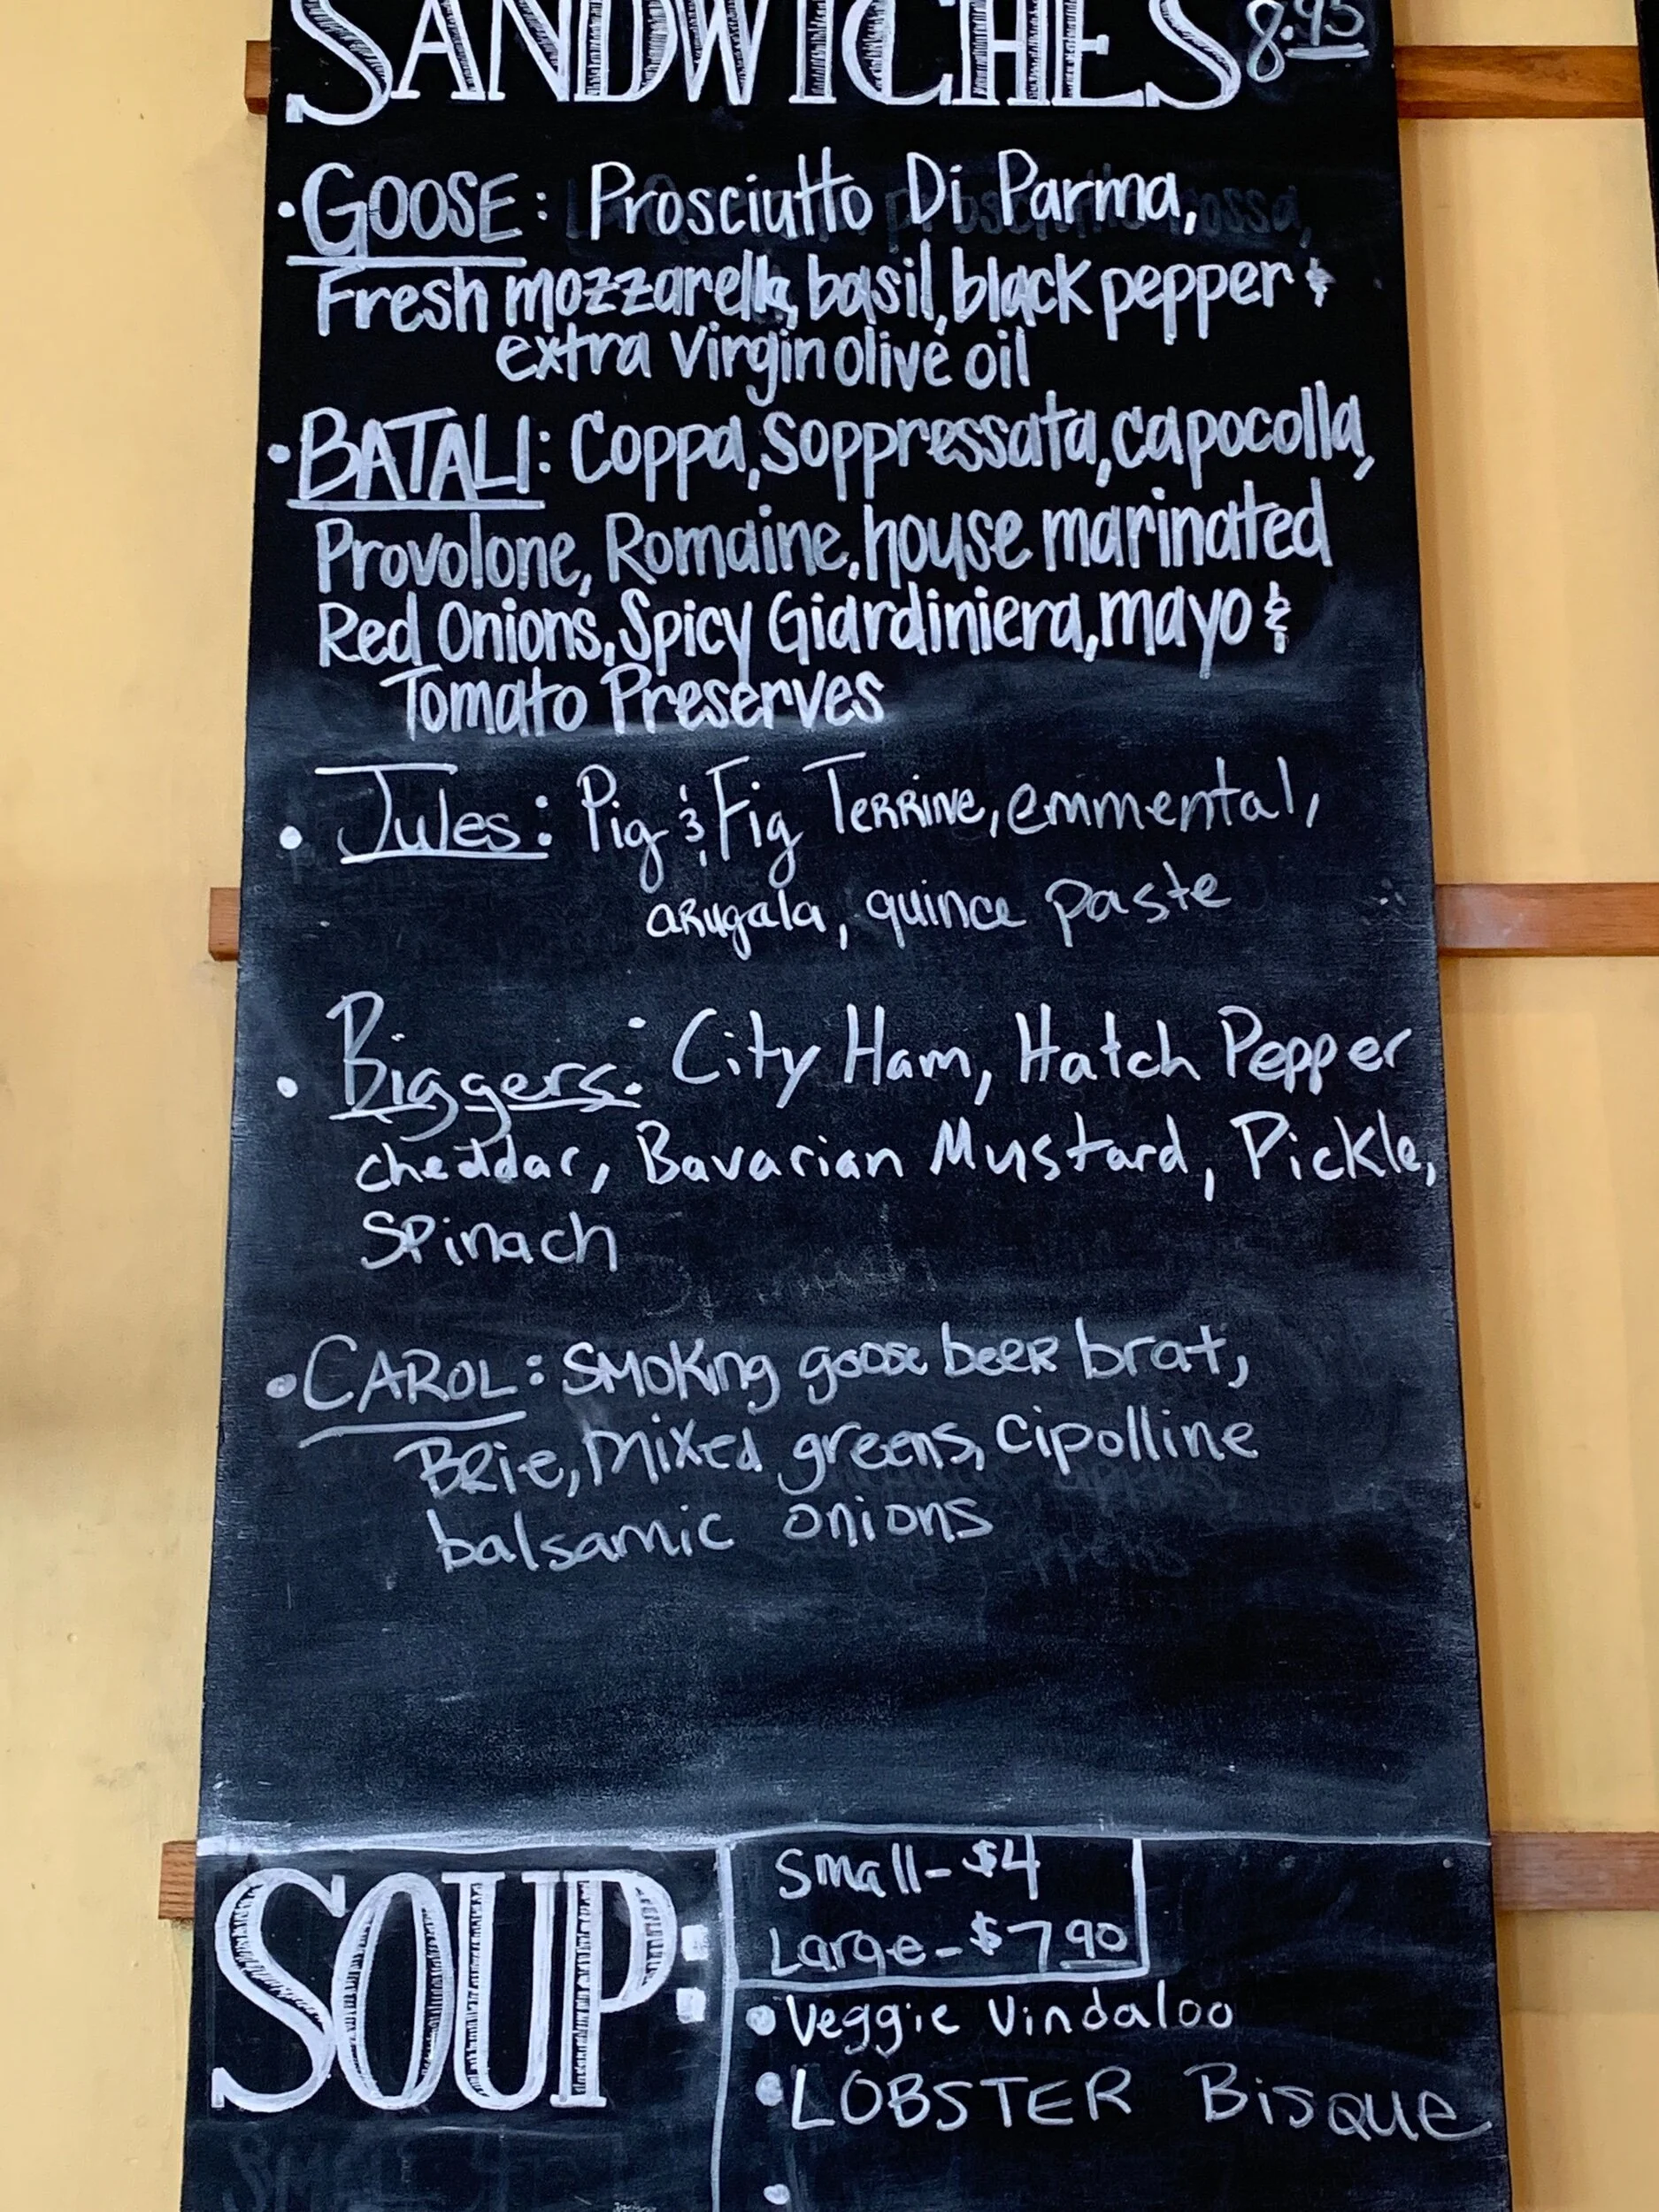 SANDWICHES 8.95
• GOOSE: Prosciutto Di Parma,
Fresh mozzarella, basil, black pepper &
extra virgin olive oil
• BATALI: Coppa, Soppressata, capocolla,
Provolone, Romaine, house marinated
Red Onions, Spicy Giardiniera, mayo &
Tomato Preserves
• Jules: Pig & Fig Terrine, emmental,
arugala, quince paste
• Biggers: City Ham, Hatch Pepper
cheddar, Bavarian Mustard, Pickle,
Spinach
• CAROL: Smoking goose beer brat,
Brie, mixed greens, cipolline
balsamic onions
SOUP:
Small - $4
Large - $7.90
• Veggie Vindaloo
• LOBSTER Bisque
•